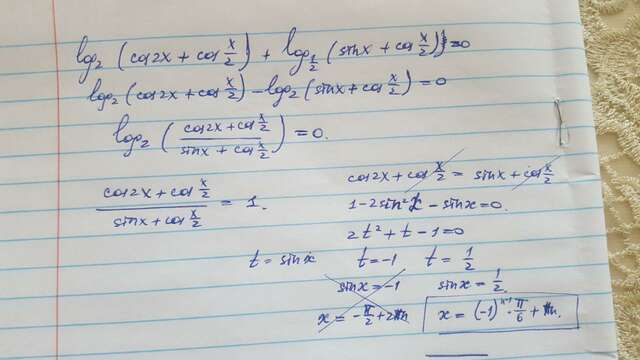 log₂ (cos2x + cos x/2) + log_{1/2} (sinx + cos x/2) = 0
log₂ (cos2x + cos x/2) - log₂ (sinx + cos x/2) = 0
log₂ ((cos2x + cos x/2)/(sinx + cos x/2)) = 0.
(cos2x + cos x/2)/(sinx + cos x/2) = 1.
cos2x + cos x/2 = sinx + cos x/2
1 - 2sin²x - sinx = 0.
2t² + t - 1 = 0
t = sinx t = -1 t = 1/2
sinx = -1 sinx = 1/2.
x = -π/2 + 2πn x = (-1)ⁿ · π/6 + πn.